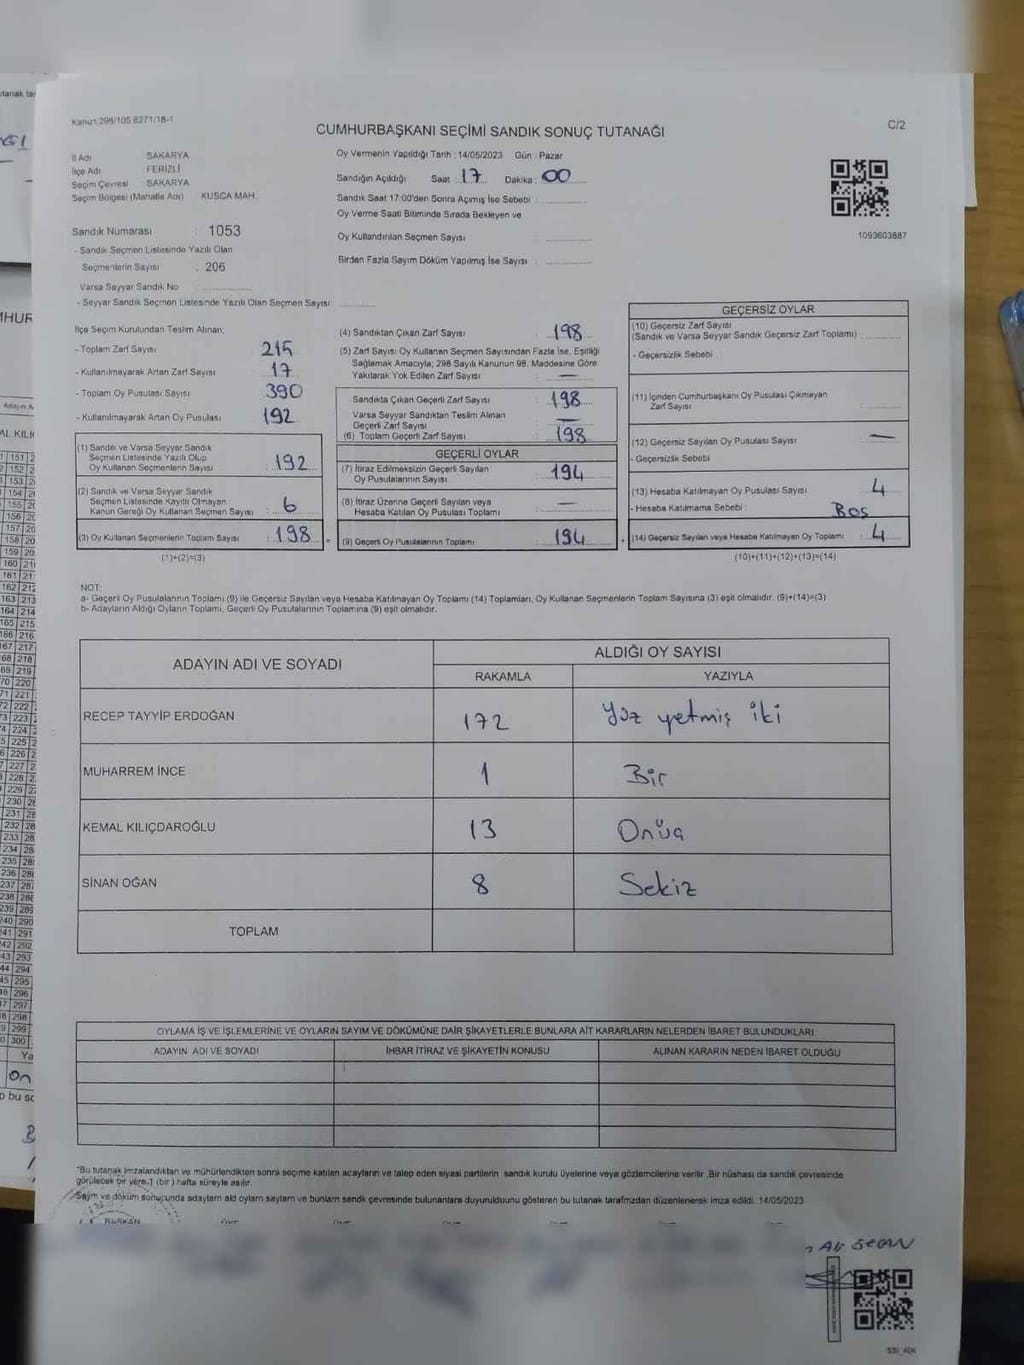 Kanun 298/105 6271/18-1
CUMHURBAŞKANI SEÇİMİ SANDIK SONUÇ TUTANAĞI
C/2
İl Adı SAKARYA
İlçe Adı FERİZLİ
Seçim Çevresi SAKARYA
Seçim Bölgesi (Mahalle Adı) KUSCA MAH.
Oy Vermenin Yapıldığı Tarih : 14/05/2023 Gün : Pazar
Sandığın Açıldığı Saat : 17 Dakika : 00
Sandık Saat 17:00'den Sonra Açılmış İse Sebebi :
Oy Verme Saati Bitiminde Sırada Bekleyen ve
Oy Kullandırılan Seçmen Sayısı
Birden Fazla Sayım Döküm Yapılmış İse Sayısı :
1093603887
Sandık Numarası : 1053
- Sandık Seçmen Listesinde Yazılı Olan
Seçmenlerin Sayısı : 206
Varsa Seyyar Sandık No
- Seyyar Sandık Seçmen Listesinde Yazılı Olan Seçmen Sayısı
İlçe Seçim Kurulundan Teslim Alınan;
- Toplam Zarf Sayısı 215
- Kullanılmayarak Artan Zarf Sayısı 17
- Toplam Oy Pusulası Sayısı 390
- Kullanılmayarak Artan Oy Pusulası 192
(1) Sandık ve Varsa Seyyar Sandık
Seçmen Listesinde Yazılı Olup
Oy Kullanan Seçmenlerin Sayısı : 192
(2) Sandık ve Varsa Seyyar Sandık
Seçmen Listesinde Kayıtlı Olmayan
Kanun Gereği Oy Kullanan Seçmen Sayısı : 6
(3) Oy Kullanan Seçmenlerin Toplam Sayısı : 198
(1)+(2)=(3)
(4) Sandıktan Çıkan Zarf Sayısı : 198
(5) Zarf Sayısı Oy Kullanan Seçmen Sayısından Fazla İse, Eşitliği
Sağlamak Amacıyla; 298 Sayılı Kanunun 98. Maddesine Göre
Yakılarak Yok Edilen Zarf Sayısı : —
Sandıkta Çıkan Geçerli Zarf Sayısı : 198
Varsa Seyyar Sandıktan Teslim Alınan
Geçerli Zarf Sayısı : —
(6) Toplam Geçerli Zarf Sayısı : 198
GEÇERLİ OYLAR
(7) İtiraz Edilmeksizin Geçerli Sayılan
Oy Pusulalarının Sayısı : 194
(8) İtiraz Üzerine Geçerli Sayılan veya
Hesaba Katılan Oy Pusulası Toplamı : —
(9) Geçerli Oy Pusulalarının Toplamı : 194
GEÇERSİZ OYLAR
(10) Geçersiz Zarf Sayısı
(Sandık ve Varsa Seyyar Sandık Geçersiz Zarf Toplamı) :
- Geçersizlik Sebebi :
(11) İçinden Cumhurbaşkanı Oy Pusulası Çıkmayan
Zarf Sayısı :
(12) Geçersiz Sayılan Oy Pusulası Sayısı : —
- Geçersizlik Sebebi
(13) Hesaba Katılmayan Oy Pusulası Sayısı : 4
- Hesaba Katılmama Sebebi : Boş
(14) Geçersiz Sayılan veya Hesaba Katılmayan Oy Toplamı : 4
(10)+(11)+(12)+(13)=(14)
NOT:
a- Geçerli Oy Pusulalarının Toplamı (9) ile Geçersiz Sayılan veya Hesaba Katılmayan Oy Toplamı (14) Toplamları, Oy Kullanan Seçmenlerin Toplam Sayısına (3) eşit olmalıdır. (9)+(14)=(3)
b- Adayların Aldığı Oyların Toplamı, Geçerli Oy Pusulalarının Toplamına (9) eşit olmalıdır.
ADAYIN ADI VE SOYADI
ALDIĞI OY SAYISI
RAKAMLA YAZIYLA
RECEP TAYYİP ERDOĞAN 172 Yüz yetmiş iki
MUHARREM İNCE 1 Bir
KEMAL KILIÇDAROĞLU 13 Onüç
SİNAN OĞAN 8 Sekiz
TOPLAM
OYLAMA İŞ VE İŞLEMLERİNE VE OYLARIN SAYIM VE DÖKÜMÜNE DAİR ŞİKAYETLERLE BUNLARA AİT KARARLARIN NELERDEN İBARET BULUNDUKLARI
ADAYIN ADI VE SOYADI İHBAR İTİRAZ VE ŞİKAYETİN KONUSU ALINAN KARARIN NEDEN İBARET OLDUĞU
*Bu tutanak imzalandıktan ve mühürlendikten sonra seçime katılan adayların ve talep eden siyasi partilerin sandık kurulu üyelerine veya gözlemcilerine verilir. Bir nüshası da sandık çevresinde
görülecek bir yere 1 (bir) hafta süreyle asılır.
Sayım ve döküm sonucunda adayların ald oyların sayıların ve bunların sandık çevresinde bulunanlara duyurulduunu gösteren bu tutanak tarafımızdan düzenlenerek imza edildi. 14/05/2023
BAŞKAN